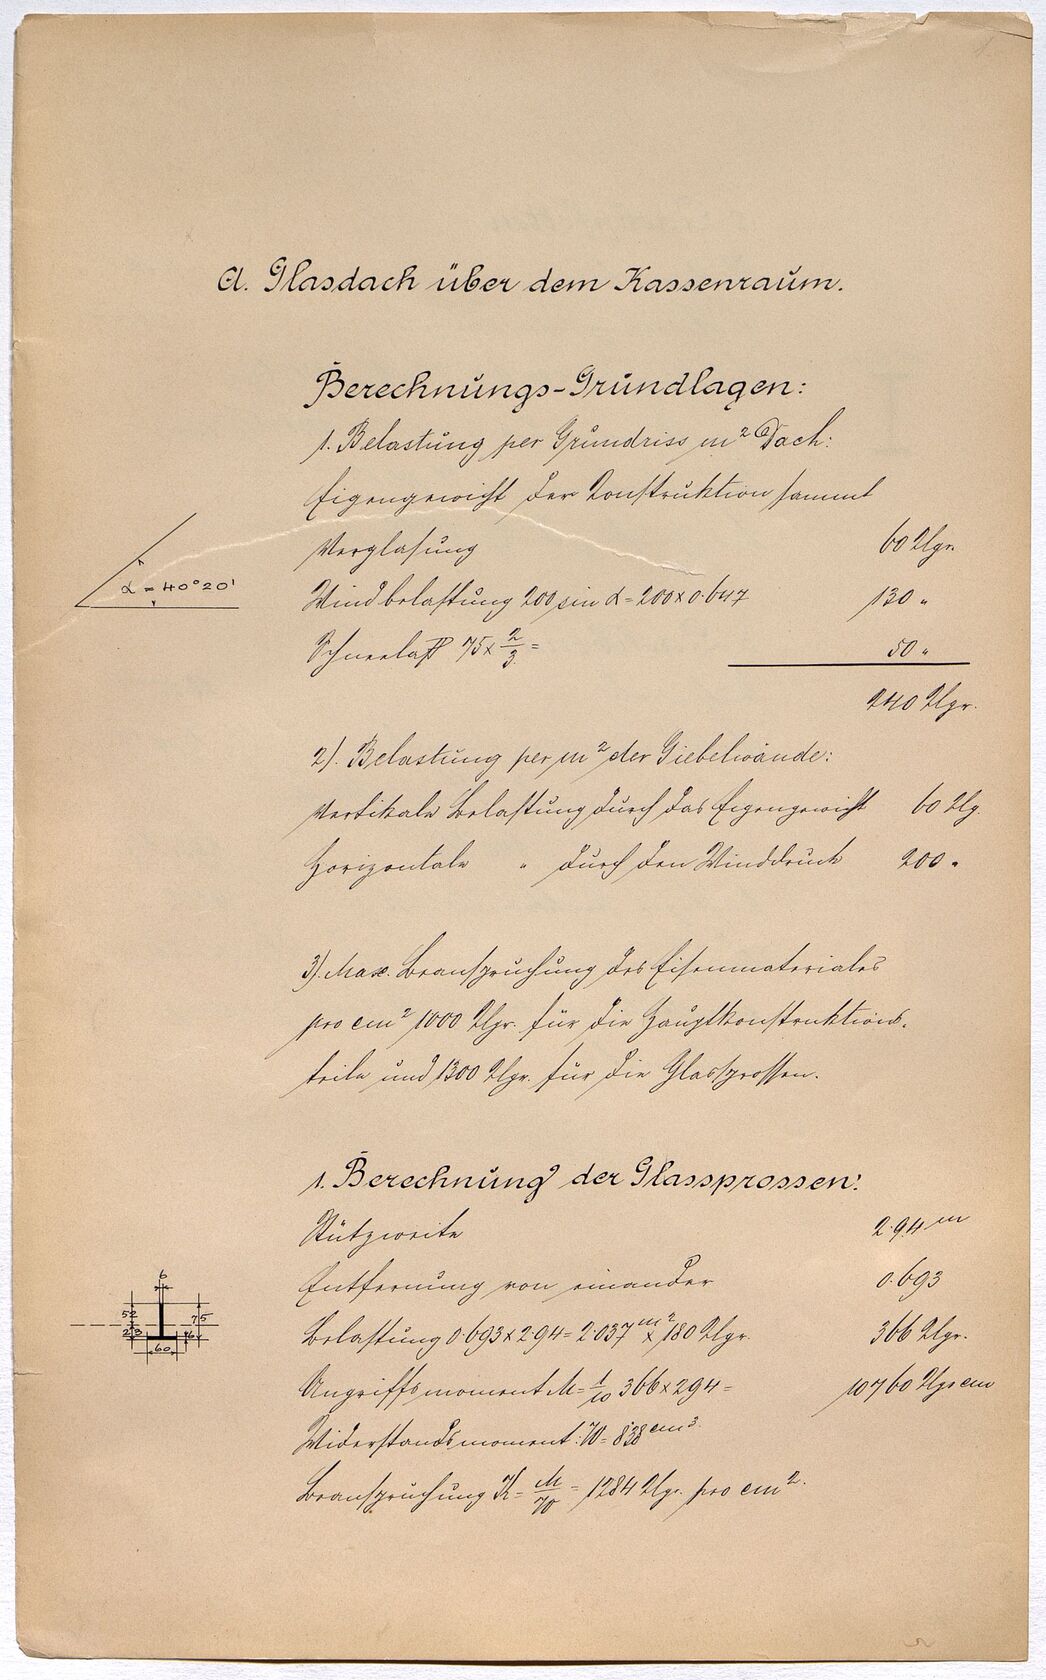 A. Glasdach über dem Kassenraum.
Berechnungs-Grundlagen:
1. Belastung per Grundriss m² Dach:
Eigengewicht der Construktion sammt
Verglasung 60 Klgr.
α = 40° 20'
Windbelastung 200 sin α = 200 x 0.647 130 "
Schneelast 75 x 2/3 = 50 "
240 Klgr.
2). Belastung per m² der Giebelwände:
Vertikale Belastung durch das Eigengewicht 60 Klg.
Horizontale " durch den Winddruck 200 "
3). Max. Beanspruchung des Eisenmateriales
pro cm² 1000 Klgr. für die Hauptkonstruktions-
teile und 1300 Klgr. für die Glassprossen.
1. Berechnung der Glassprossen:
Stützweite 2.94 m
Entfernung von einander 0.693
Belastung 0.693 x 2.94 = 2.037 m² x 180 Klgr. 366 Klgr.
Angriffsmoment M = 1/10 366 x 294 = 10760 Klgr cm
Widerstandsmoment: W = 8.38 cm³.
Beanspruchung K = M/W = 1284 Klgr. pro cm².
6
52
23
75
6
60